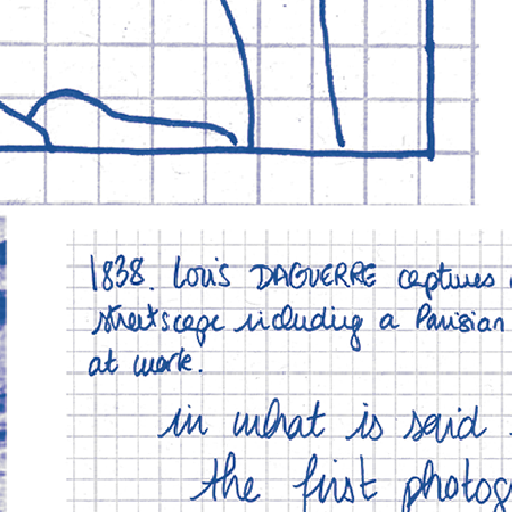 1838. Louis DAGUERRE captures
streetscape including a Parisian
at work.
in what is said
the first photog